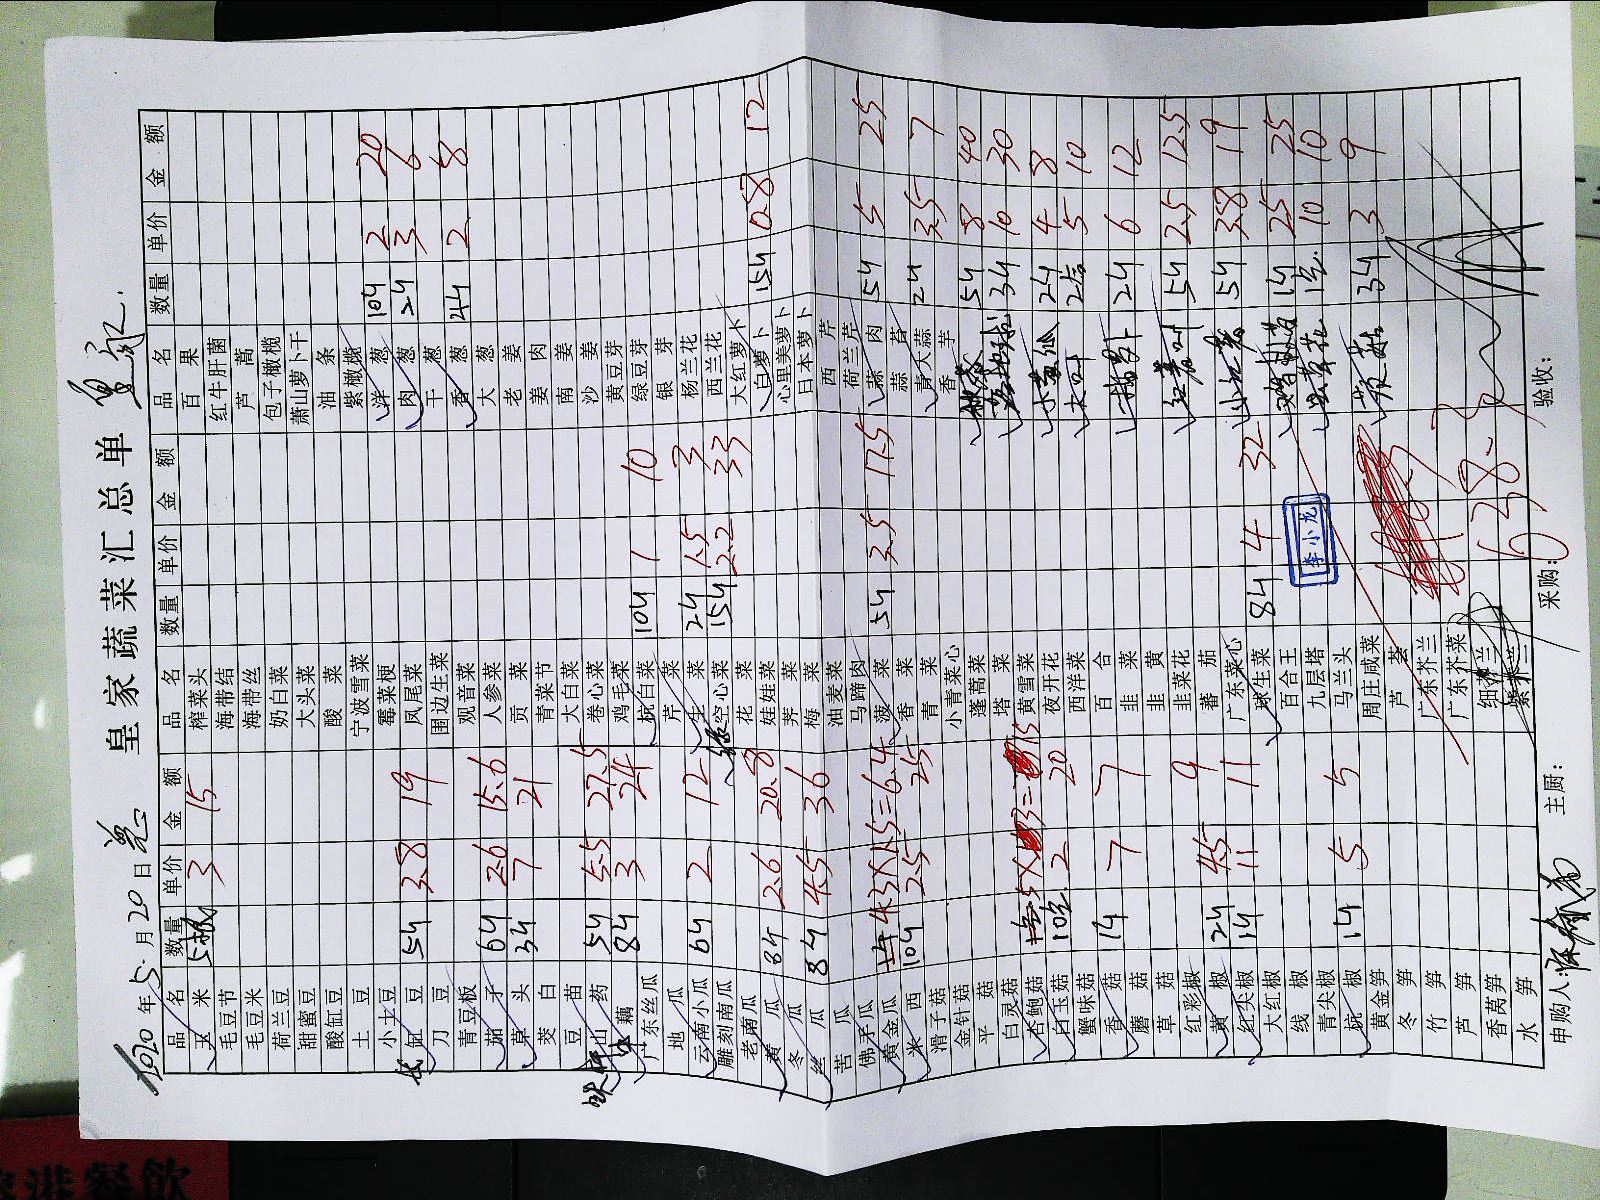 皇家蔬菜汇总单
2020年5月20日
品名 数量 单价 金额 品名 数量 单价 金额 品名 数量 单价 金额
玉米 3 15 榨菜头 百果
毛豆节 海带结 红牛肝菌
毛豆米 海带丝 芦蒿
荷兰豆 奶白菜 包子橄榄
甜蜜豆 大头菜 萧山萝卜干
酸缸豆 酸菜 油条
土豆 宁波雪菜 紫橄榄
小土豆 霉菜梗 洋葱 10斤 2 20
缸豆 5斤 3.8 19 凤尾菜 肉葱 2斤 3 6
刀豆 围边生菜 干葱
青豆板 观音菜 香葱 4斤 2 8
茄子 6斤 2.6 15.6 人参菜 大葱
草头 3斤 7 21 贡菜 老姜
茭白 青菜节 姜肉
豆苗 大白菜 南姜
山药 5斤 5.5 27.5 卷心菜 沙姜
藕 8斤 3 24 鸡毛菜 黄豆芽
广东丝瓜 杭白菜 10斤 1 10 绿豆芽
地瓜 芹菜 银芽
云南小瓜 6斤 2 12 生菜 2斤 1.5 3 杨兰花
雕刻南瓜 空心菜 15斤 2.2 33 西兰花
老南瓜 花菜 大红萝卜
黄瓜 8斤 2.6 20.8 娃娃菜 白萝卜 15斤 0.8 12
冬瓜 荠菜 心里美萝卜
丝瓜 8斤 4.5 36 梅菜 日本萝卜
苦瓜 油麦菜 西芹
佛手瓜 马蹄肉 荷兰芹
黄金瓜 4.3×1.5=6.4 菠菜 5斤 3.5 17.5 蒜肉 5斤 5 25
米西 10斤 2.5 25 香菜 蒜苔
滑子菇 青菜 青大蒜 2斤 3.5 7
金针菇 小青菜心 香芋
平菇 蓬蒿菜 5斤 8 40
白灵菇 塔菜 3斤 10 30
杏鲍菇 黄雪菜
白玉菇 10包 2 20 夜开花 2斤 4 8
蟹味菇 西洋菜 5 10
香菇 1斤 7 7 百合
蘑菇 韭菜 2斤 6 12
草菇 韭黄
红彩椒 韭菜花 5斤 2.5 12.5
黄椒 2斤 4.5 9 蕃茄
红尖椒 1斤 11 11 广东菜心 5斤 3.8 19
大红椒 球生菜 8斤 4 32
线椒 百合王 1斤 25 25
青尖椒 九层塔 10 10
杭椒 1斤 5 5 马兰头
黄金笋 周庄咸菜 3斤 3 9
冬笋 芦荟
竹笋 广东芥兰
芦笋 广东芥菜
香莴笋
水笋
李小龙
638.3
申购人: 主厨: 采购: 验收:
港餐飲